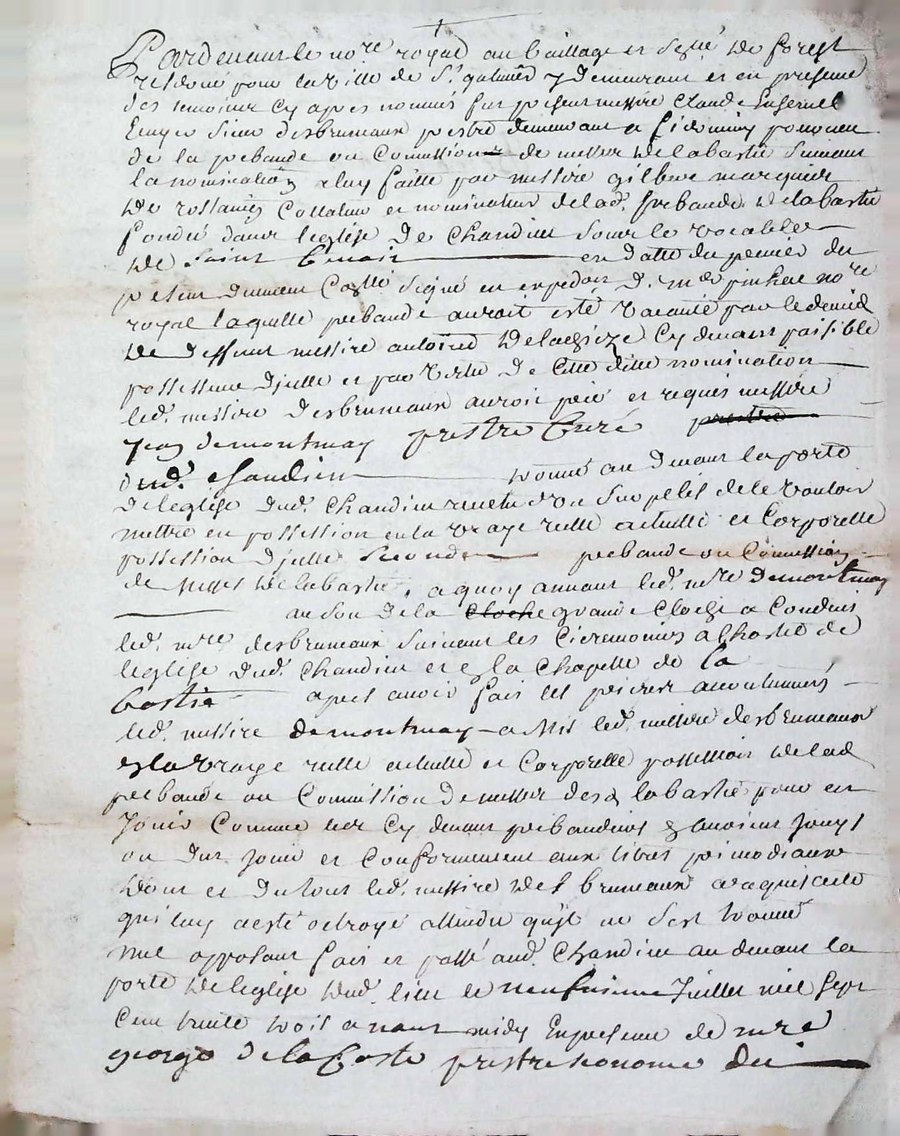 Pardevant le no.re royal au bailliage et senné de forest
reservé pour la ville de St galmier y demeurant et en presence
des temoins cy apres nommés fut present messire Claude
Ecuyer sieur desbruneaux prestre demeurant a firminy pourveu
de la prebande ou Comission de messes de labastie suivant
la nomination a luy faitte par messire gilbert marquier
de rostaing Collateur et nominateur de lad. prebande de labastie
fondée dans leglise de Chandieu soubs le vocable
de saint en datte du premier du
present du mesme Coste signé en expedion no.re
royal laquelle prebande auroit esté vacante par le deceds
de deffunt messire antoine cy devant paisible
possesseur d'jcelle et par vertu de cette ditte nomination
led. messire desbruneaux auroit prié et requis messire
jean demontmay prestre Curé prestre
dud. chandieu trouvé au devant la porte
de leglise dud. Chandieu revetu d'un surpelis de le vouloir
mettre en possession en la vraye reelle actuelle et Corporelle
possession d'jcelle prebande ou Commission
de messes de labastie, a quoy annuant led. m.re demontmay
au son de la Cloche grande Cloche a Conduit
led. m.re desbruneaux suivant les Ceremonies a lhostel de
leglise dud. Chandieu et a la Chapelle de la
bastie apres avoir fait les prieres acoutumées
led. messire demontmay a Mis led. messire desbruneaux
en la vraye reelle actuelle et Corporelle possession de lad
prebande ou Commission de messes de labastie pour en
Jouir Comme les cy devant prebandiers en avoient Jouys
ou du Jouir et Conformement aux titres primodiaux
dont et du tout led. messire des bruneaux a requis acte
qui luy a esté octroyé attendu qu'jl ne sest trouvé
nul opposant fait et passé aud. Chandieu au devant la
porte de leglise dud. lieu le neufvieme Juillet mil sept
Cent trente trois avant midy En presence de m.re
george de la Coste prestre du